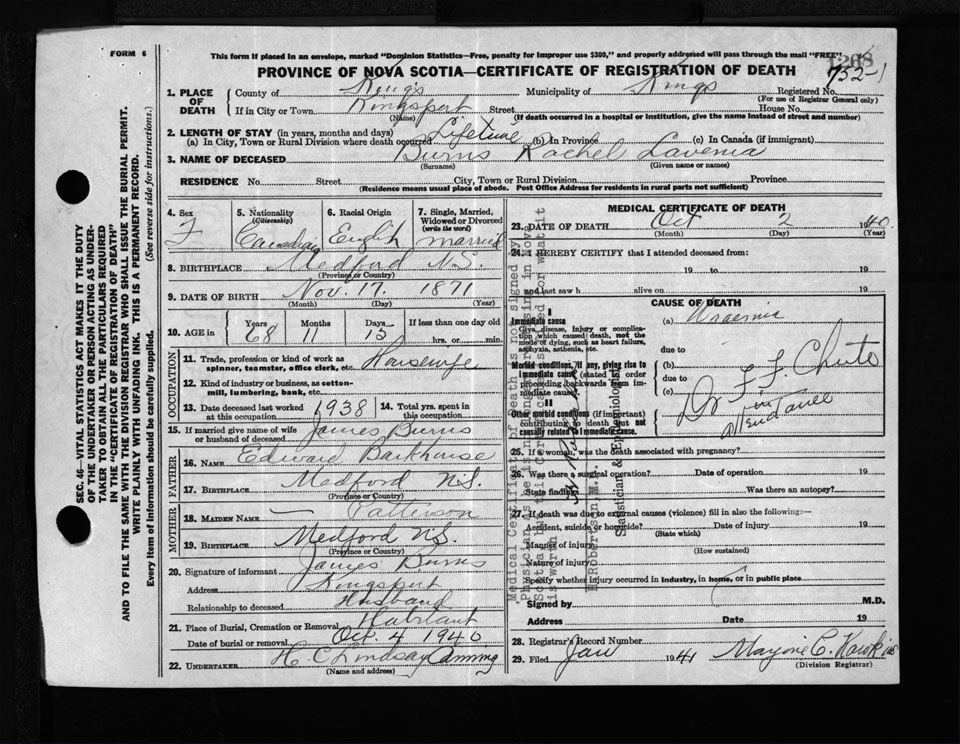 FORM 6
This form if placed in an envelope, marked "Dominion Statistics—Free, penalty for improper use $300," and properly addressed will pass through the mail "FREE"
1268
PROVINCE OF NOVA SCOTIA—CERTIFICATE OF REGISTRATION OF DEATH
752-1
1. PLACE OF DEATH
County of Kings Municipality of Kings Registered No.
(For use of Registrar General only)
If in City or Town Kingsport Street House No.
(Name) (If death occurred in a hospital or institution, give the name instead of street and number)
2. LENGTH OF STAY (in years, months and days)
(a) In City, Town or Rural Division where death occurred Lifetime (b) In Province (c) In Canada (if immigrant)
3. NAME OF DECEASED Burns Rachel Lavenia
(Surname) (Given name or names)
RESIDENCE No. Street City, Town or Rural Division Province
(Residence means usual place of abode. Post Office Address for residents in rural parts not sufficient)
4. Sex F
5. Nationality (Citizenship) Canadian
6. Racial Origin English
7. Single, Married, Widowed or Divorced (write the word) married
8. BIRTHPLACE Medford N.S.
(Province or Country)
9. DATE OF BIRTH Nov. 17. 1871
(Month) (Day) (Year)
10. AGE in Years 68 Months 11 Days 15 If less than one day old hrs. or min.
OCCUPATION
11. Trade, profession or kind of work as spinner, teamster, office clerk, etc. Housewife
12. Kind of industry or business, as cotton-mill, lumbering, bank, etc.
13. Date deceased last worked at this occupation 1938
14. Total yrs. spent in this occupation
15. If married give name of wife or husband of deceased James Burns
FATHER
16. NAME Edward Barkhouse
17. BIRTHPLACE Medford N.S.
(Province or Country)
MOTHER
18. MAIDEN NAME — Patterson
19. BIRTHPLACE Medford N.S.
(Province or Country)
20. Signature of informant James Burns
Address Kingsport
Relationship to deceased Husband
21. Place of Burial, Cremation or Removal Habitant
Date of burial or removal Oct. 4 1940
22. UNDERTAKER H. C. Lindsay Canning
(Name and address)
MEDICAL CERTIFICATE OF DEATH
23. DATE OF DEATH Oct 2 1940.
(Month) (Day) (Year)
24. I HEREBY CERTIFY that I attended deceased from:
19 to 19
and last saw h alive on 19
CAUSE OF DEATH
I
Immediate cause
Give disease, injury or complication which caused death, not the mode of dying, such as heart failure, asphyxia, asthenia, etc.
(a) Uraemia
due to
Morbid conditions, if any, giving rise to immediate cause (stated in order proceeding backwards from immediate cause).
(b)
due to
(c)
Dr F. F. Chute
in
attendance
II
Other morbid conditions (if important) contributing to death but not causally related to immediate cause.
25. If a woman, was the death associated with pregnancy?
26. Was there a surgical operation? Date of operation 19
State findings Was there an autopsy?
27. If death was due to external causes (violence) fill in also the following:—
Accident, suicide or homicide? Date of injury 19
(State which)
Manner of injury
(How sustained)
Nature of injury
Specify whether injury occurred in industry, in home, or in public place
Signed by M.D.
Address Date 19
28. Registrar's Record Number
29. Filed Jan 1941 Marjorie C. Hawkins
(Division Registrar)
SEC. 46—VITAL STATISTICS ACT MAKES IT THE DUTY
OF THE UNDERTAKER OR PERSON ACTING AS UNDER-
TAKER TO OBTAIN ALL THE PARTICULARS REQUIRED
IN THE "CERTIFICATE OF REGISTRATION OF DEATH"
AND TO FILE THE SAME WITH THE DIVISION REGISTRAR WHO SHALL ISSUE THE BURIAL PERMIT.
WRITE PLAINLY WITH UNFADING INK. THIS IS A PERMANENT RECORD.
Every item of information should be carefully supplied. (See reverse side for instructions.)
Medical Certificate of Death is not signed by
Statistician & Epidemiologist